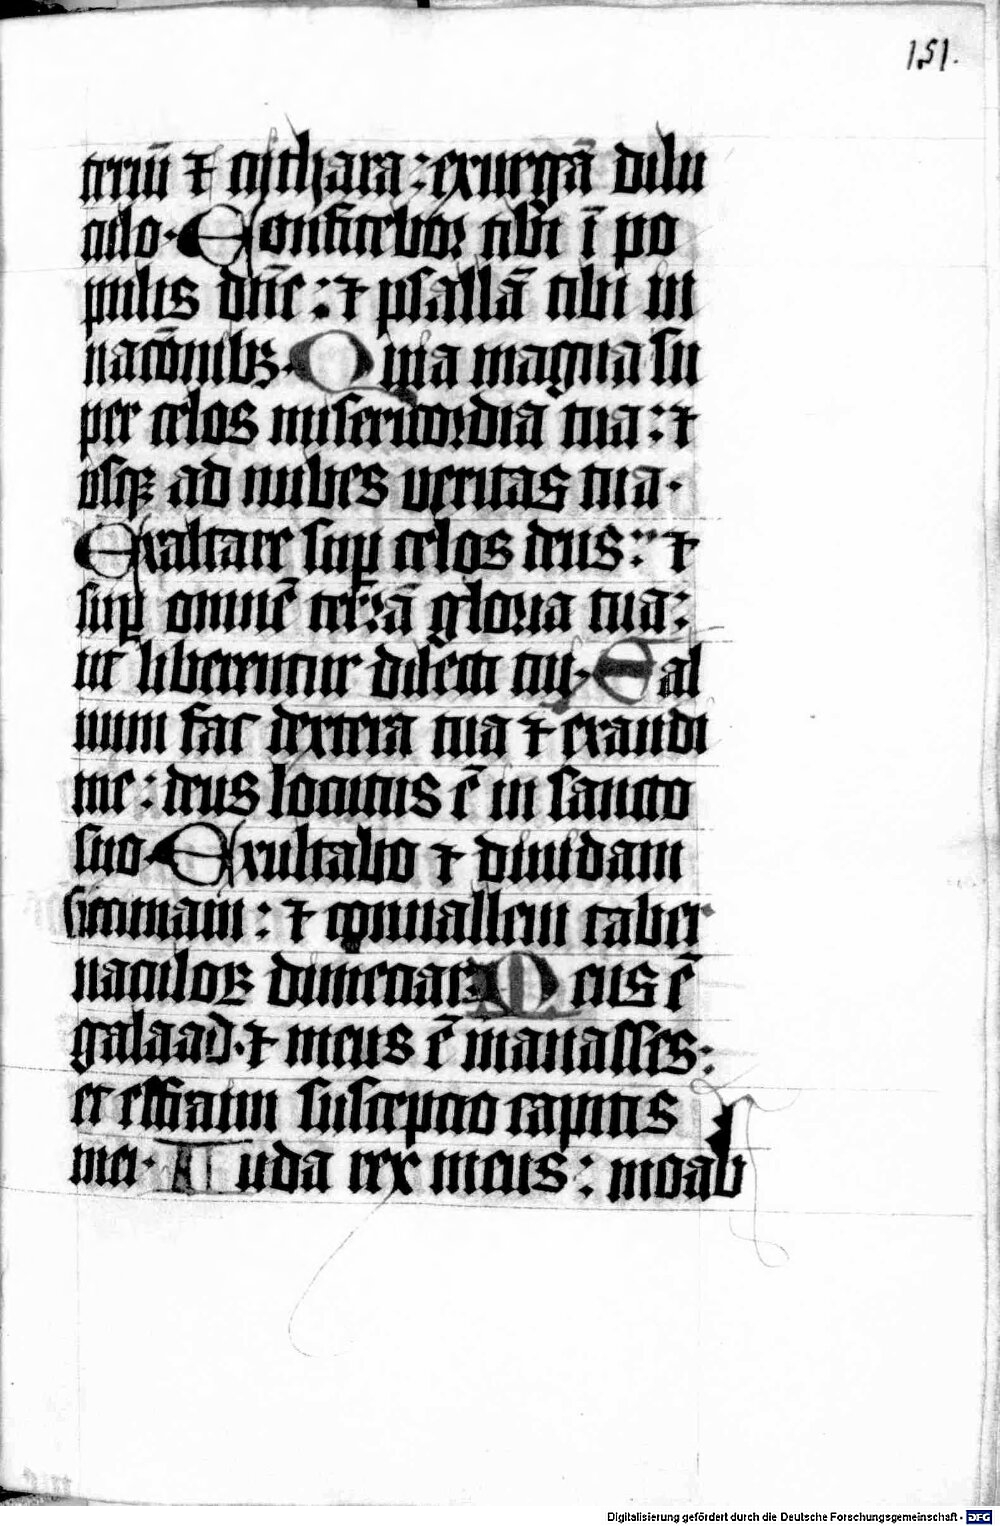 151.
teriū ⁊ cythara : exurgā dilu
culo · Confitebor tibi ī po
pulis dn̄e : ⁊ psallā tibi in
nacōnibꝫ · Quia magna su
per celos misericordia tua : ⁊
usqꝫ ad nubes veritas tua ·
Exaltare suꝑ celos deus : ⁊
suꝑ omnē terrā gloria tua :
ut liberentur dilecti tui · Sal
uum fac dextera tua ⁊ exaudi
me : deus locutus ē in sancto
suo · Exultabo ⁊ diuidam
siccimam : ⁊ conuallem taber
naculoꝝ dimeciar · Meus ē
galaad · ⁊ meus ē manasses :
et effraim susceptio capitis
mei · Iuda rex meus : moab
Digitalisierung gefördert durch die Deutsche Forschungsgemeinschaft - DFG